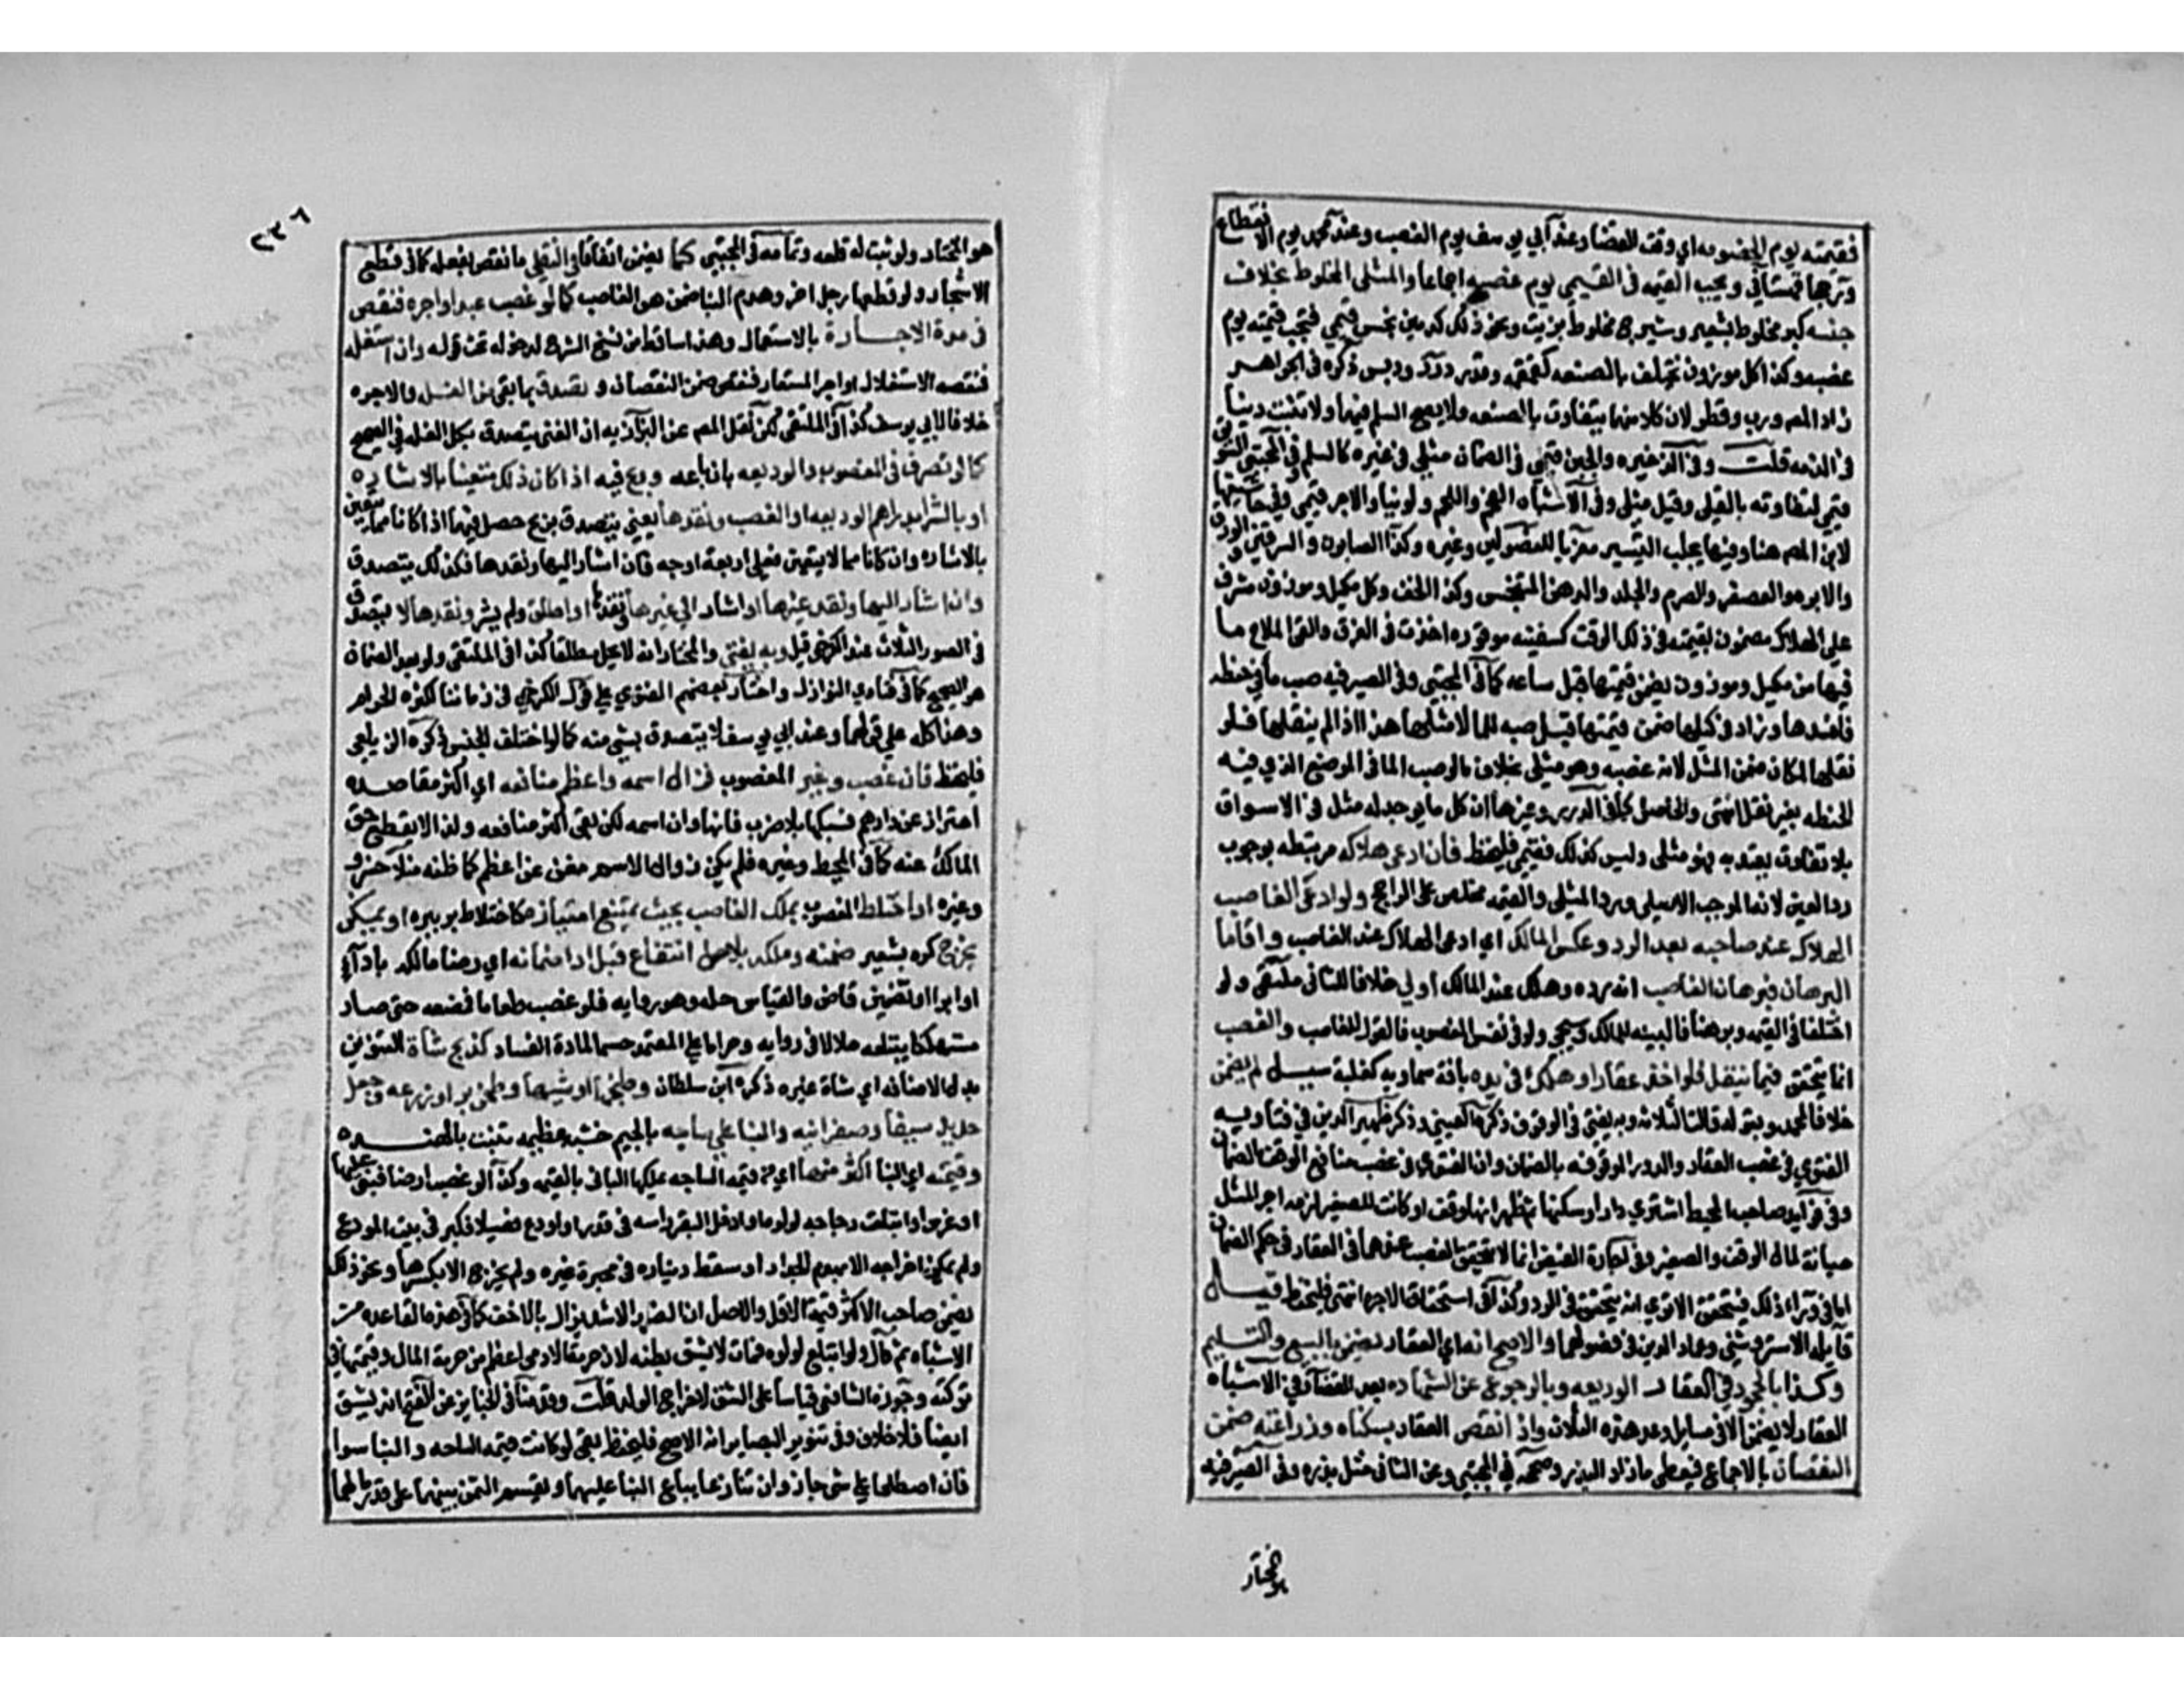 فقيمته يوم الخصومه اي وقت القضا وعند ابي يوسف يوم الغصب وعند محمد يوم الانقطاع
وتجب القيمه في القيمي يوم غصبه اجماعا والمثلي المخلوط بخلاف
جنسه كبر مخلوط بشعير وشيرج مخلوط بزيت ونحو ذلك كدهن نجس قيمي فتجب قيمته يوم
غصبه وكذا كل موزون يختلف بالصنعه كقمقم وقدر ودبس ذكره في الجواهر
زاد المص ورب وقطر لان كلا منها يتفاوت بالصنعه ولا يصح السلم فيها ولا تثبت دينا
في الذمه قلت وفي الذخيره والجبن قيمي في الضمان مثلي في غيره كالسلم وفي المجتبى السويق
قيمي لتفاوته بالقلي وقيل مثلي وفي الاشباه الفحم واللحم ولو نيا والاجر قيمي وفي حاشيتها
لابن المص هنا وفيما يجلب التيسير معزيا للفصولين وغيره وكذا الصابون والسرقين والورق
والابره والعصفر والصرم والجلد والدهن المتنجس وكذا الجفت وكل مكيل وموزون مشرف
على الهلاك مضمون بقيمته في ذلك الوقت كسفينه موقوره اخذت في الغرق والقى الملاح ما
فيها من مكيل وموزون يضمن قيمتها قبل ساعه كما في المجتبى وفي الصيرفيه صب ما في حنطه
فافسدها وزاد في كيلها ضمن قيمتها قبل صبه الما لا مثلها هذا اذا لم ينقلها فلو
نقلها لمكان ضمن المثل لانه غصبه وهو مثلي بخلاف ما لو صب الما في الموضع الذي فيه
الحنطه بغير نقل انتهى والحاصل كما في الدرر وغيرها ان كل ما يوجد له مثل في الاسواق
بلا تفاوت يعتد به فهو مثلي وليس كذلك فقيمي فليحفظ فان ادعى هلاكه مرتبطه بوجوب
رد العين لانه الموجب الاصلي ورد المثلي والقيمه مخلص على الراجح ولو ادعى الغاصب
الهلاك عند صاحبه بعد الرد وعكس المالك اي ادعى الهلاك عند الغاصب واقاما
البرهان فبرهان الغاصب انه رده وهلك عند المالك اولى خلافا للثاني ملتقى ولو
اختلفا في القيمه وبرهنا فالبينه للمالك وسيجي ولو في نفس المغصوب فالقول للغاصب والغصب
انما يتحقق فيما ينقل فلو اخذ عقارا وهلك في يده بافة سماويه كغلبة سيل لم يضمن
خلافا لمحمد وبقوله قالت الثلاثه وبه يفتى في الوقف ذكره العيني وذكر ظهير الدين في فتاويه
الفتوى في غصب العقار والدور الموقوفه بالضمان وان الفتوى في غصب منافع الوقف الضمان
وفي فوايد صاحب المحيط اشترى دارا وسكنها ثم ظهر انها وقف او كانت للصغير لزمه اجر المثل
صيانة لمال الوقف والصغير وفي اجارة الفيض انما لا يتحقق الغصب عندهما في العقار في حكم الضمان
اما فيما وراء ذلك فيتحقق الاترى انه يتحقق في الرد وكذا في استحقاق الاجر انتهى فليحفظ قيل
قايله الاستروشني وعماد الدين في فصولهما والاصح انه اي العقار يضمن بالبيع والتسليم
وكذا بالجحود في العقار الوديعه وبالرجوع عن الشهاده بعد القضا وفي الاشباه
العقار لا يضمن الا في مسايل وعد هذه الثلاث واذا نقص العقار بسكناه وزراعته ضمن
النقصان بالاجماع فيعطى ما زاد البذر وصححه في المجتبى وعن الثاني مثل بذره وفي الصيرفيه
هو المختار
٢٣٦
هو المختار ولو نبت له قلعه وتمامه في المجتبى كما يضمن اتفاقا في النقلي ما نقص بفعله كما في قطع
الاشجار ولو قطعها رجل اخر وهدم البنا ضمن هو الغاصب كما لو غصب عبدا واجره فنقص
في مدة الاجارة بالاستعمال وهذا ساقط من نسخ الشرح لدخوله تحت قوله وان استغله
فنقصه الاستغلال او اجر المستعار فنقص ضمن النقصان و تصدق بما بقي من الغله والاجره
خلافا لابي يوسف كذا في الملتقى لكن نقل المص عن البزازيه ان الغني يتصدق بكل الغله في الصحيح
كما لو تصرف في المغصوب والوديعه بان باعه وربح فيه اذا كان ذلك متعينا بالاشاره
او بالشرا بدراهم الوديعه او الغصب ونقدها يعني يتصدق بربح حصل فيهما اذا كانا مما يتعين
بالاشاره وان كانا مما لا يتعين فعلى اربعة اوجه فان اشار اليها ونقدها فكذلك يتصدق
وان اشار اليها ونقد غيرها او اشار الى غيرها ونقدها او اطلق ولم يشر ونقدها لا يتصدق
في الصور الثلاث عند الكرخي قيل وبه يفتى والمختار انه لا يحل مطلقا كذا في الملتقى ولو بعد الضمان
هو الصحيح كما في فتاوي النوازل واختار بعضهم الفتوى على قول الكرخي في زماننا لكثرة الحرام
وهذا كله على قولهما وعند ابي يوسف لا يتصدق بشي منه كما لو اختلف الجنس ذكره الزيلعي
فليحفظ فان غصب وغير المغصوب فزال اسمه واعظم منافعه اي اكثر مقاصده
احترازا عن دراهم فسبكها بلا ضرب فانه وان اسمه لكن بقي اكثر منافعه ولذا لا ينقطع حق
المالك عنه كما في المحيط وغيره فلم يكن زوال الاسم مغن عن اعظم كما ظنه منلا خسرو
وغيره او اختلط المغصوب بملك الغاصب بحيث يمتنع امتيازه كاختلاط بره ببره او يمكن
بحرج كبره بشعير ضمنه وملكه بلا حل انتفاع قبل ادا ضمانه اي رضا مالكه بادا
او ابرا او تضمين قاض والقياس حله وهو روايه فلو غصب طعاما فمضغه حتى صار
مستهلكا يبتلعه حلالا في روايه وحراما على المعتمد حسما لمادة الفساد كذبح شاة التنوين
بدل الاضافه اي شاة غيره ذكره ابن سلطان وطبخها او شيها وطحن بر او زرعه وجعل
حديد سيفا وصفر انيه والبنا على ساجه بالجيم خشبه عظيمه تنبت بالهند
وقيمته اي البنا اكثر منها اي من قيمه الساجه يملكها الباني بالقيمه وكذا لو غصب ارضا فبنى عليها
او غرس او ابتلعت دجاجه لولوه او ادخل البقر راسه في قدر او اودع فصيلا فكبر في بيت المودع
ولم يمكن اخراجه الا بهدم الجدار او سقط ديناره في محبرة غيره ولم يخرج الا بكسرها ونحو ذلك
يضمن صاحب الاكثر قيمة الاقل والاصل ان الضرر الاشد يزال بالاخف كما في هذه القاعده من
الاشباه ثم قال ولو ابتلع لولوه فمات لا يشق بطنه لان حرمة الادمي اعظم من حرمة المال وقيمتها في
تركته وجوزه الشافعي قياسا على الشق لاخراج الولد قلت وقدمنا في الجنايز عن الفتح انه يشق
ايضا فلا خلاف وفي تنوير البصاير انه الاصح فليحفظ بقي لو كانت قيمه الساجه والبنا سوا
فان اصطلحا على شي جاز وان تنازعا يباع البنا عليهما ويقسم الثمن بينهما على قدر مالهما